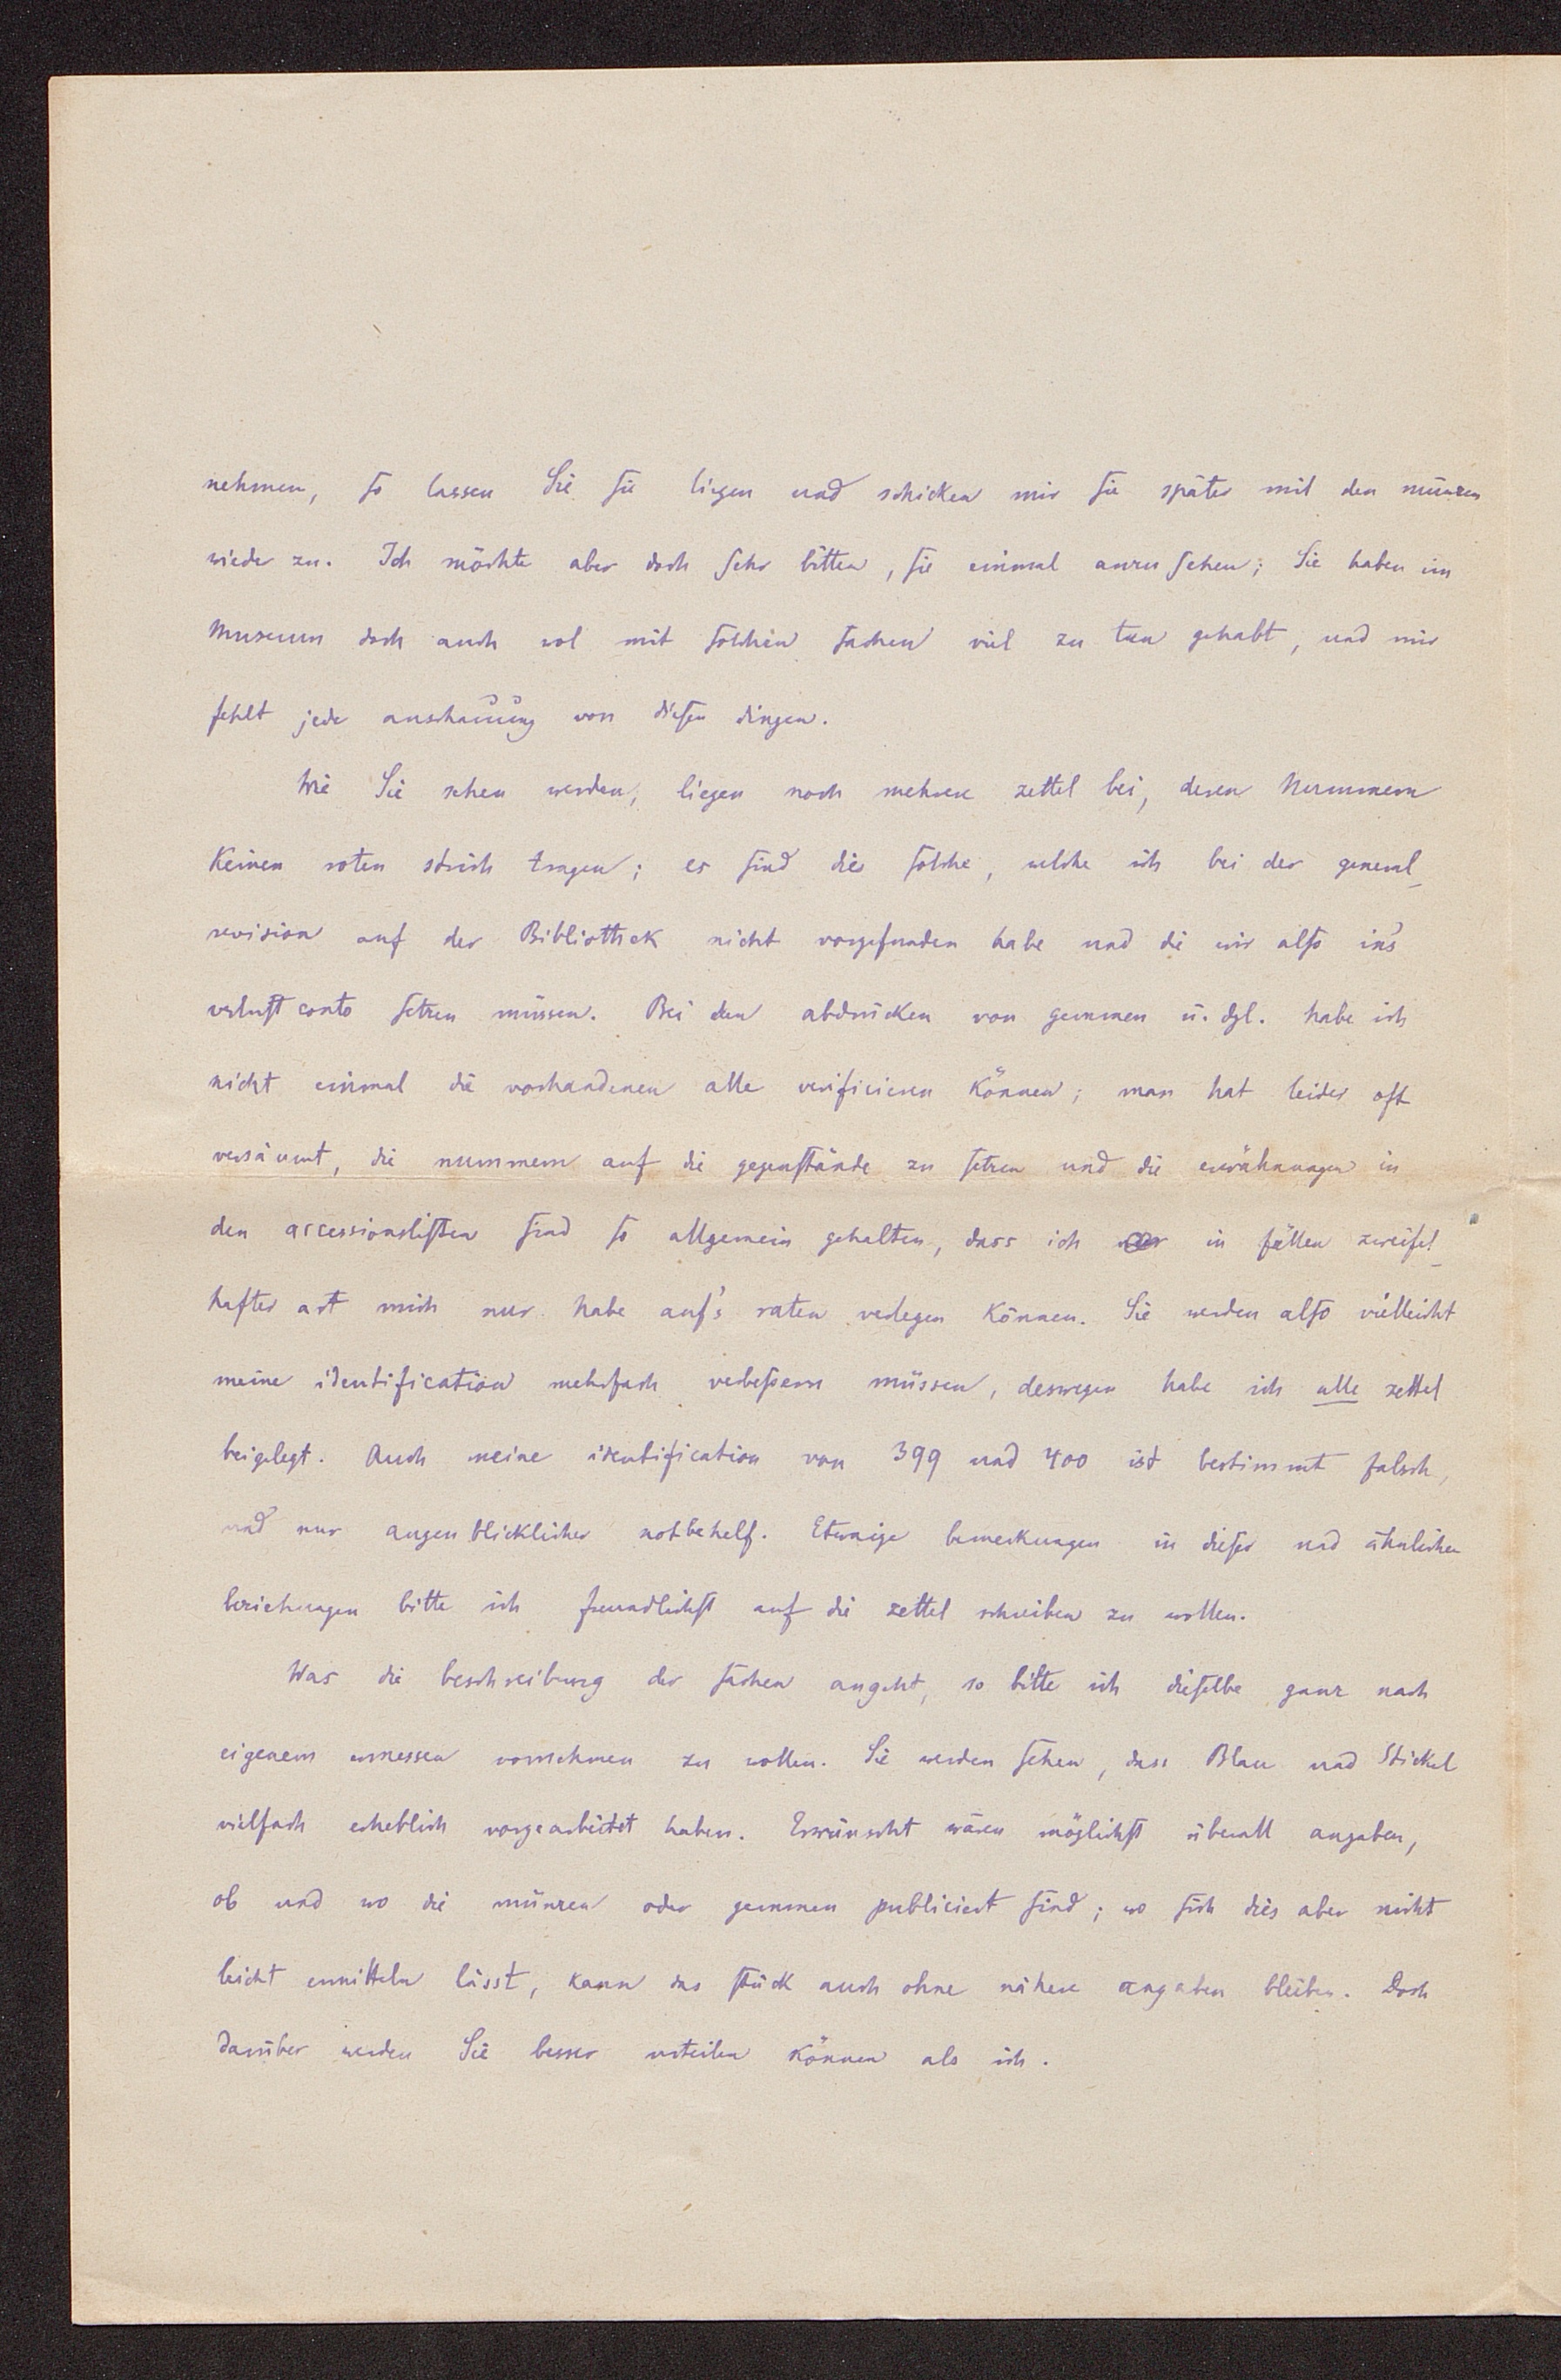 nehmen, so lassen Sie sie liegen und schicken mir sie später mit den münzen
wieder zu. Ich möchte aber doch sehr bitten, sie einmal anzusehen; Sie haben im
Museum doch auch wol mit solchen sachen viel zu tun gehabt, und mir
fehlt jede anschauung von diesen dingen.
Wie Sie sehen werden, liegen noch mehrere zettel bei, deren Nummern
keinen roten strich tragen; es sind dies solche, welche ich bei der general_
revision auf der Bibliothek nicht vorgefunden habe und die wir also in's
verlustconto setzen müssen. Bei den abdrücken von gemmen u. dgl. habe ich
nicht einmal die vorhandenen alle verificieren können; man hat leider oft
versäumt, die nummern auf die gegenstände zu setzen und die erwähnungen in
den accessionslisten sind so allgemein gehalten, dass ich in fällen zweifel_
hafter art mich nur habe auf's raten verlegen können. Sie werden also vielleicht
meine identification mehrfach verbessern müssen, deswegen habe ich alle zettel
beigelegt. Auch meine identification von 399 und 400 ist bestimmt falsch,
und nur augenblicklicher notbehelf. Etwaige bemerkungen in dieser und ähnlichen
beziehungen bitte ich freundlichst auf die zettel schreiben zu wollen.
Was die beschreibung der sachen angeht, so bitte ich dieselbe ganz nach
eigenem ermessen vornehmen zu wollen. Sie werden sehen, dass Blau und Stickel
vielfach erheblich vorgearbeitet haben. Erwünscht wären möglichst überall angaben,
ob und wo die münzen oder gemmen publiciert sind; wo sich dies aber nicht
leicht ermitteln lässt, kann das stück auch ohne nähere angaben bleiben. Doch
darüber werden Sie besser urteilen können als ich.